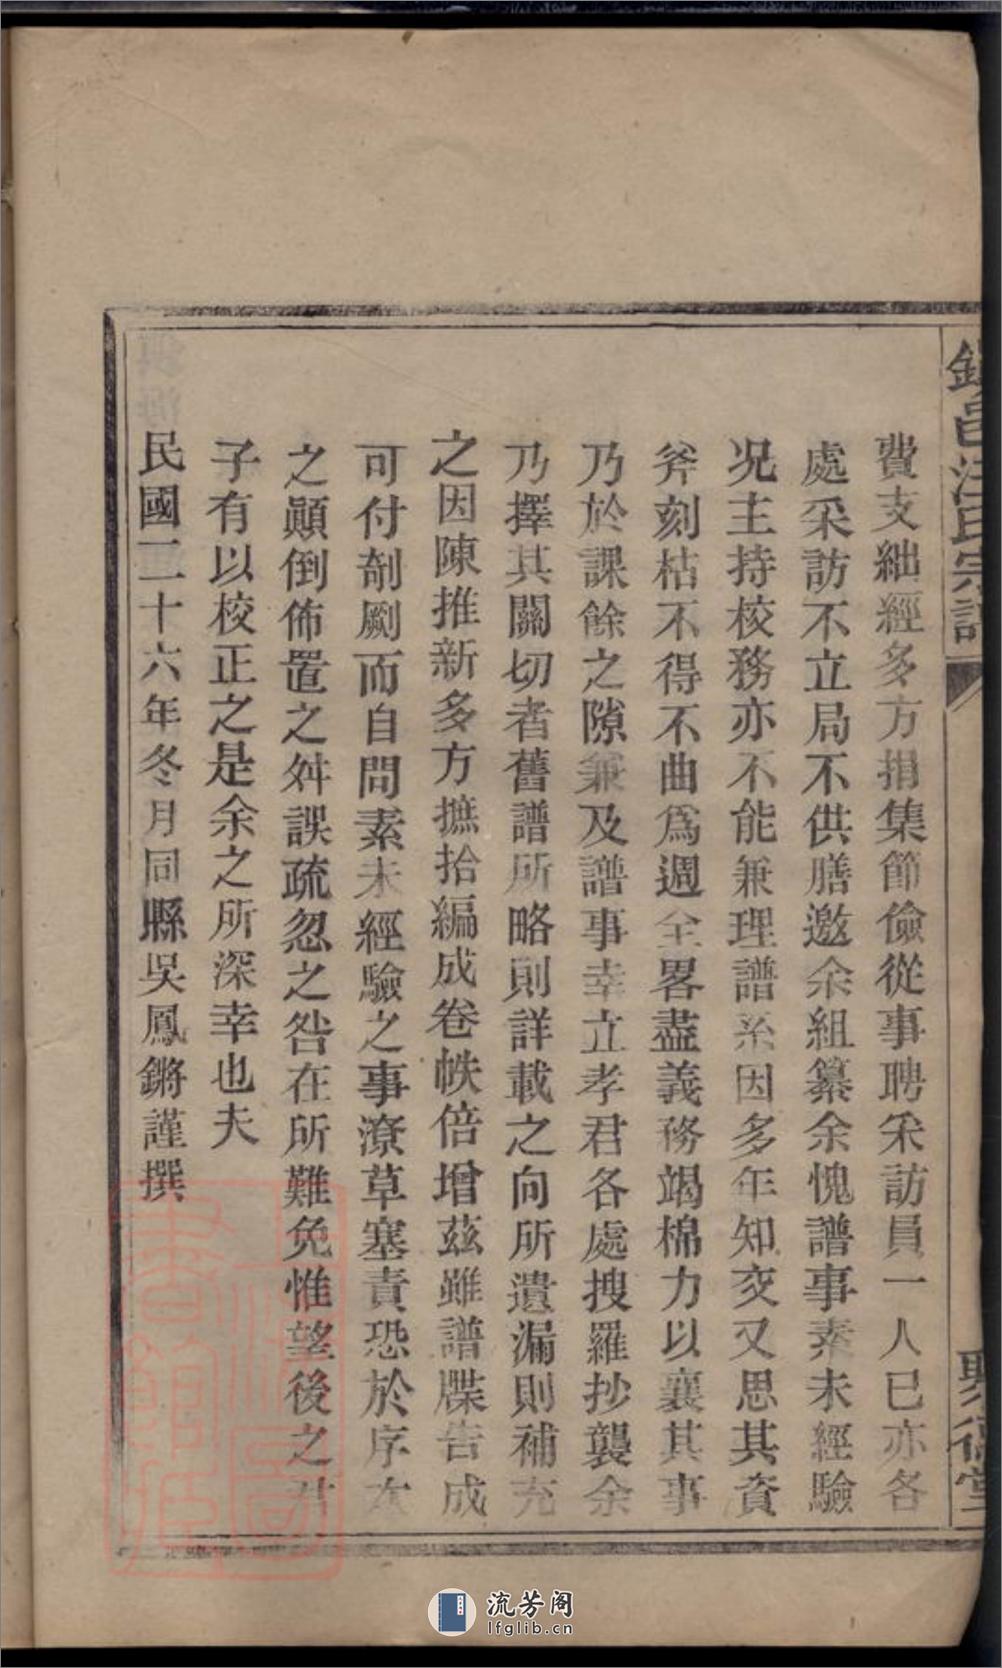 鎮邑汪氏宗譜
聚德堂
費支絀經多方捐集節儉從事聘采訪員一人已亦各
處采訪不立局不供膳邀余組纂余愧譜事素未經驗
况主持校務亦不能兼理譜系因多年知交又思其資
斧刻枯不得不曲爲週全畧盡義務竭棉力以襄其事
乃於課餘之隙兼及譜事幸立孝君各處搜羅抄襲余
乃擇其關切者舊譜所略則詳載之向所遺漏則補充
之因陳推新多方摭拾編成卷帙倍增茲雖譜牒告成
可付剞劂而自問素未經驗之事潦草塞責恐於序次
之顚倒佈置之舛誤疏忽之咎在所難免惟望後之君
子有以校正之是余之所深幸也夫
民國二十六年冬月同縣吳鳳鏘謹撰
流芳阁
lfglib.cn